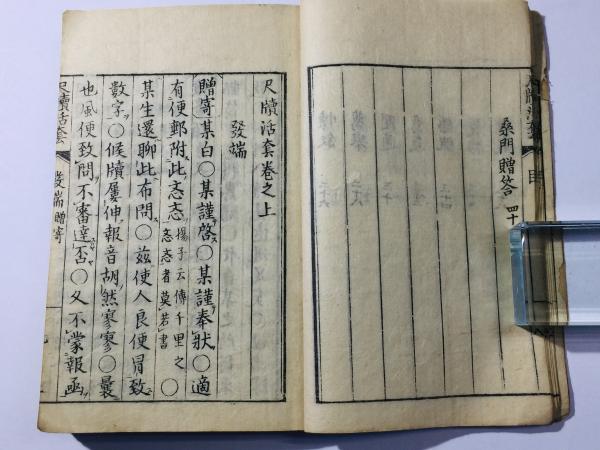 尺牘活套
目
桑門贈答 四十
尺牘活套卷之上
發端
贈寄某白○某謹啓○某謹奉狀○適
有便郵附此忞忞揚子云傳千里之忞忞者莫若書○
某生還聊此布問○茲使人良便冒致
數字○候牘屢伸報音胡然寥寥○曩
也風便致問不審達否○久不蒙報函
尺牘活套
發端 贈寄